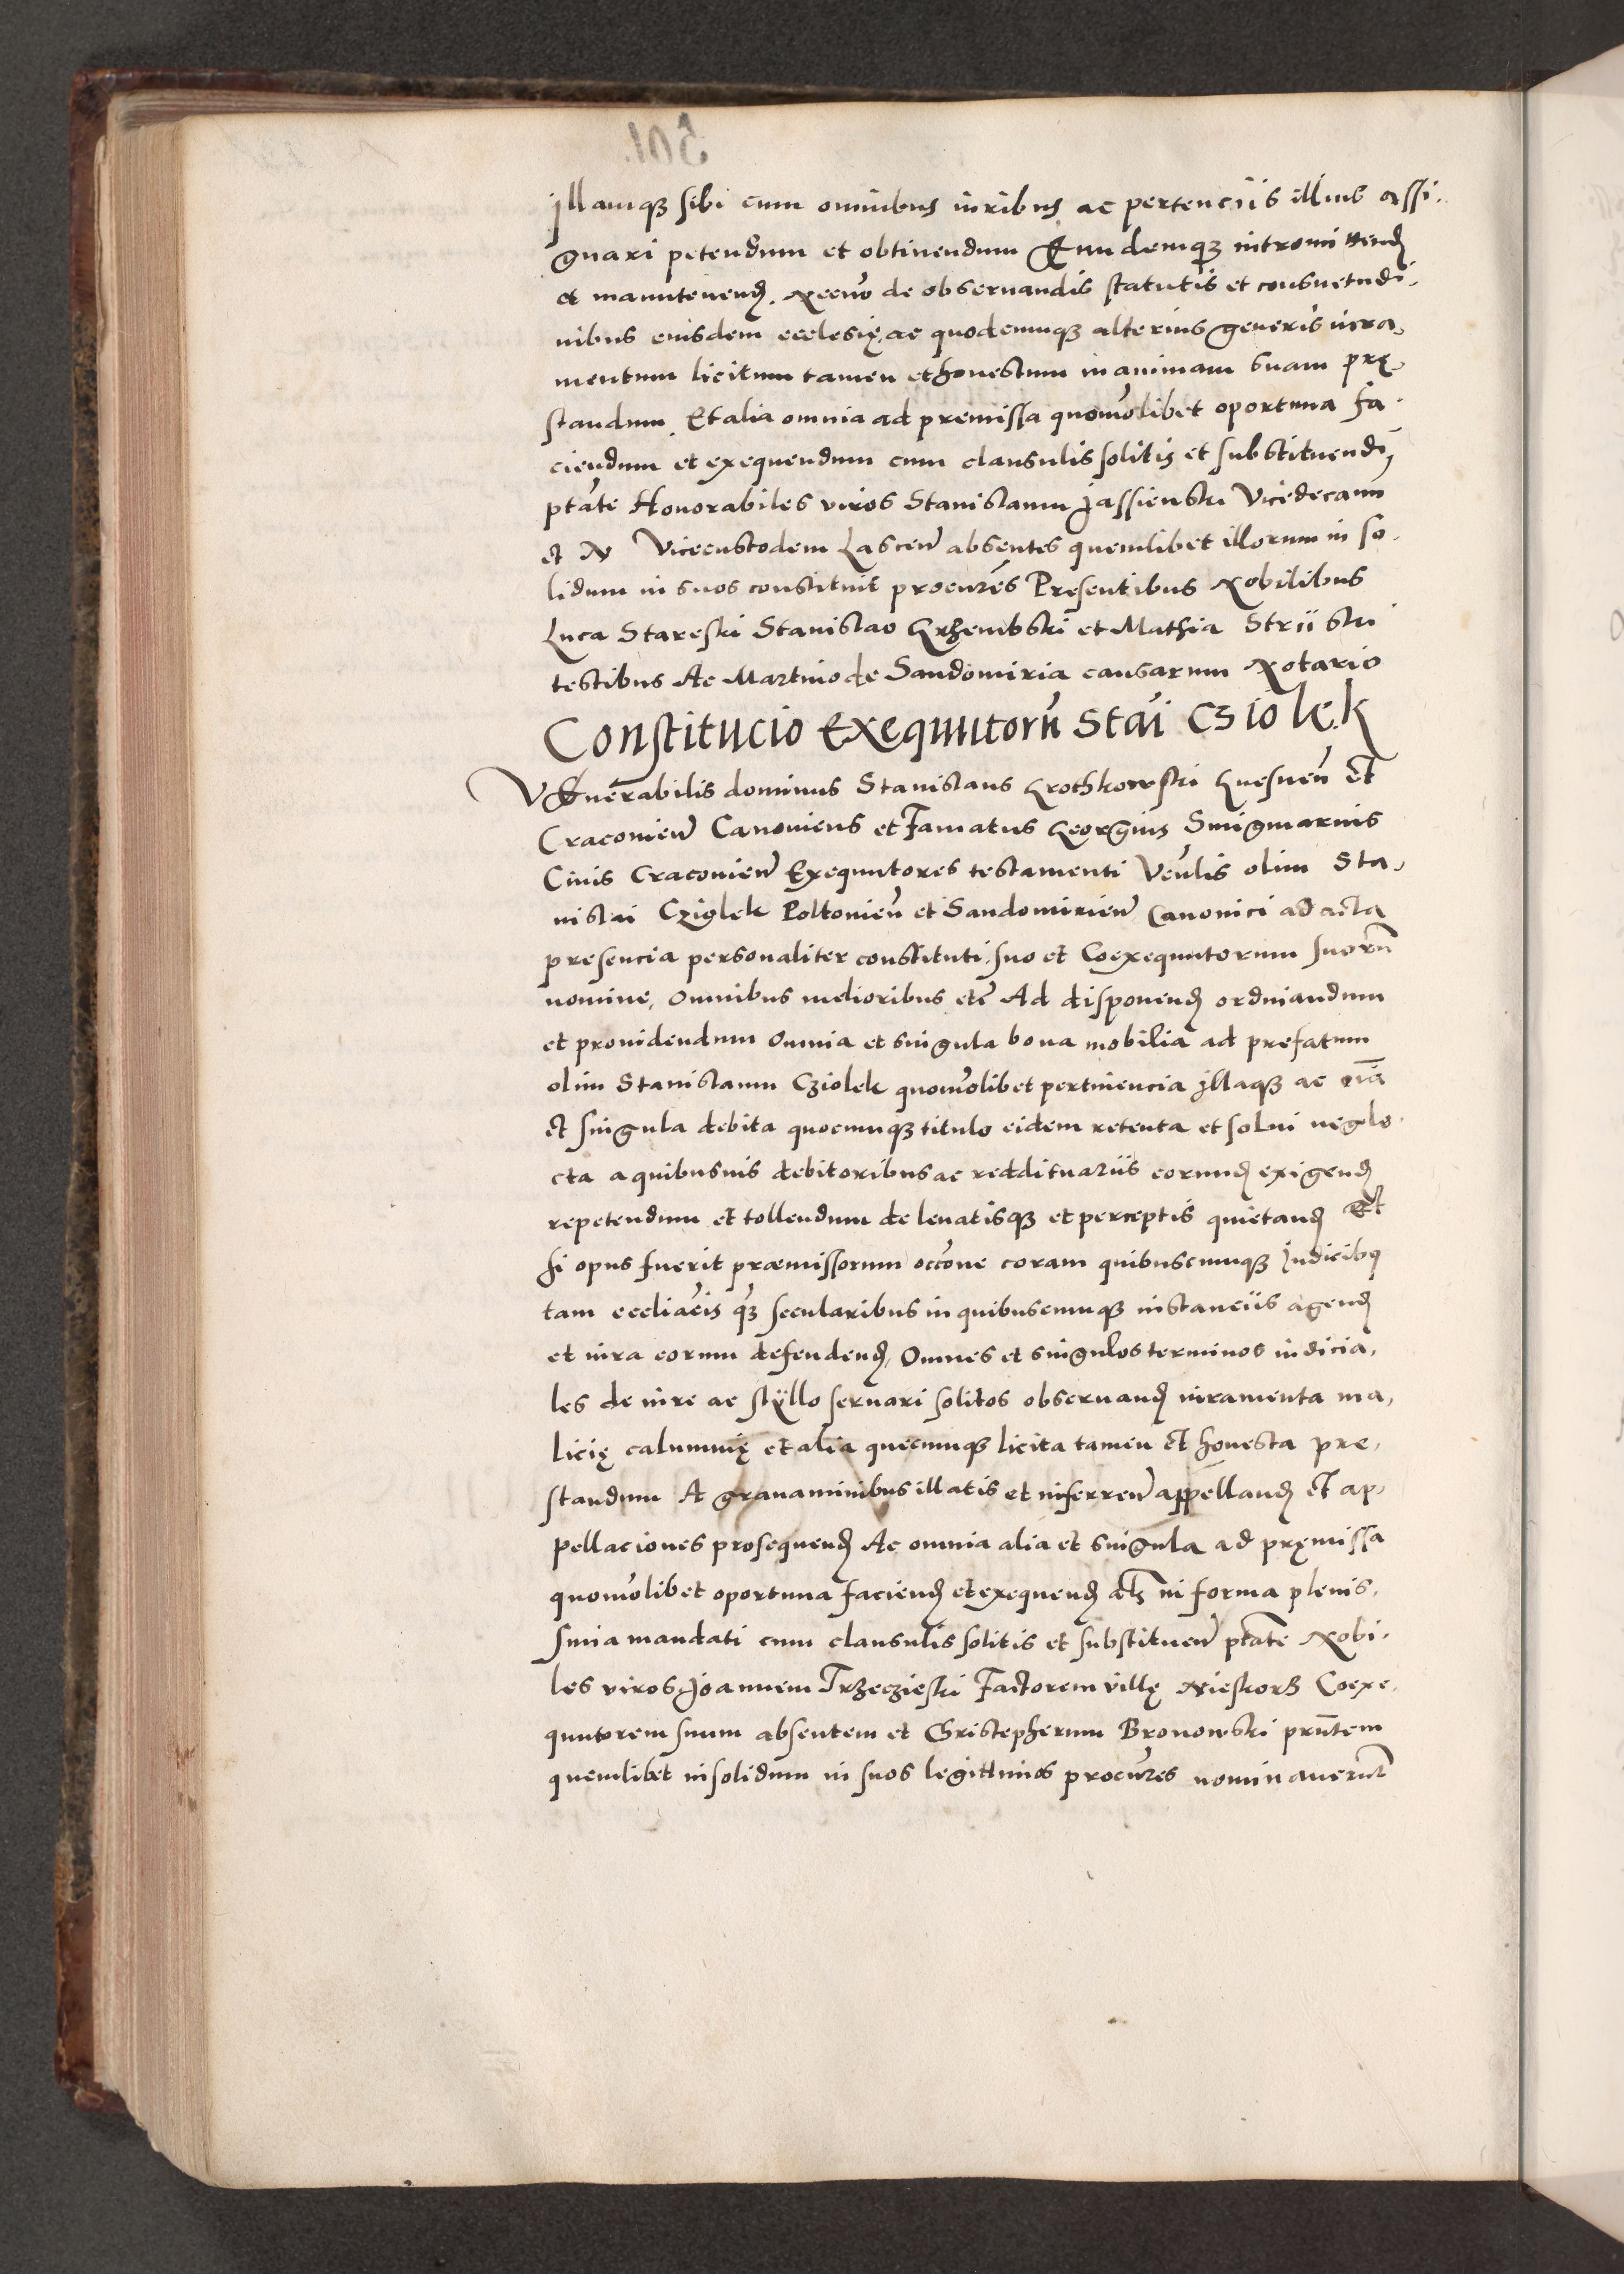 Illamq3 sibi cum omnibus iuribus ac pertenciis illius assi-
gnari petendum et obtinendum Eundemq3 intromittend
et manutenend. Necnō de obseruandis statutis et consuetudi-
nibus eiusdem ecclesię, ac quodcumq3 alterius generis iura,
mentum licitum tamen et honestum in animam suam prę,
standum, Et alia omnia ad premissa quomōlibet oportuna fa-
ciendum et exequendum cum clausulis solitis et substituendi,
ptāte Honorabiles viros Stanislaum Jassienski Vicedecanū
et N Vicecustodem Lascen̄ absentes quemlibet illorum in so-
lidum in suos constituit procurēs Presentibus Nobilibus
Luca Stareski Stanislao Grzembski et Mathia Striiski
testibus Ac Martino de Sandomiria causarum Notario
Constitucio Exequutorū Stāi Csiolek
VEnerabilis dominus Stanislaus Grothkowski Gnesnen̄ Et
Cracovien̄ Canonicus et Famatus Georgius
Ciuis Cracovien̄ Exequutores testamenti Venlīs olim Sta,
nislai Cziolek Poltovien̄ et Sandomirien̄ Canonici ad acta
presencia personaliter constituti, suo et Coexequutorum suorū
nomine, Omnibus melioribus etc̄ Ad disponend ordinandum
et prouidendum Omnia et singula bona mobilia ad prefatum
olim Stanislaum Cziolek quomōlibet pertinencia Illaq3 ac oīa
et singula debita quocumq3 titulo eidem retenta et solui negle-
cta a quibusuis debitoribus ac reddituariis eorund exigend
repetendum et tollendum de leuatisq3 et perceptis quietand Et
si opus fuerit præmissorum occōne coram quibuscumq3 Judicibus
tam ecccliācis q3 secularibus in quibuscumq3 instanciis agend
et iura eorum defendend, Omnes et singulos terminos iudicia,
les de iure ac stÿllo seruari solitos obseruand iuramenta ma,
licię calumnię et alia quecumq3 licita tamen Et honesta pre,
standum A grauaminibus illatis et inferren̄ appelland Et ap,
pellaciones prosequend Ac omnia alia et singula ad pręmissa
quomōlibet oportuna faciend et exequend als in forma plenis,
sima mandati cum clausulis solitis et substituen̄ ptāte Nobi-
les viros Joannem Trzeczieski Factorem villę Coexe,
quutorem suum absentem et Cristepherum Bronowski prūtem
quemlibet insolidum in suos legittimos procures nominauerūt